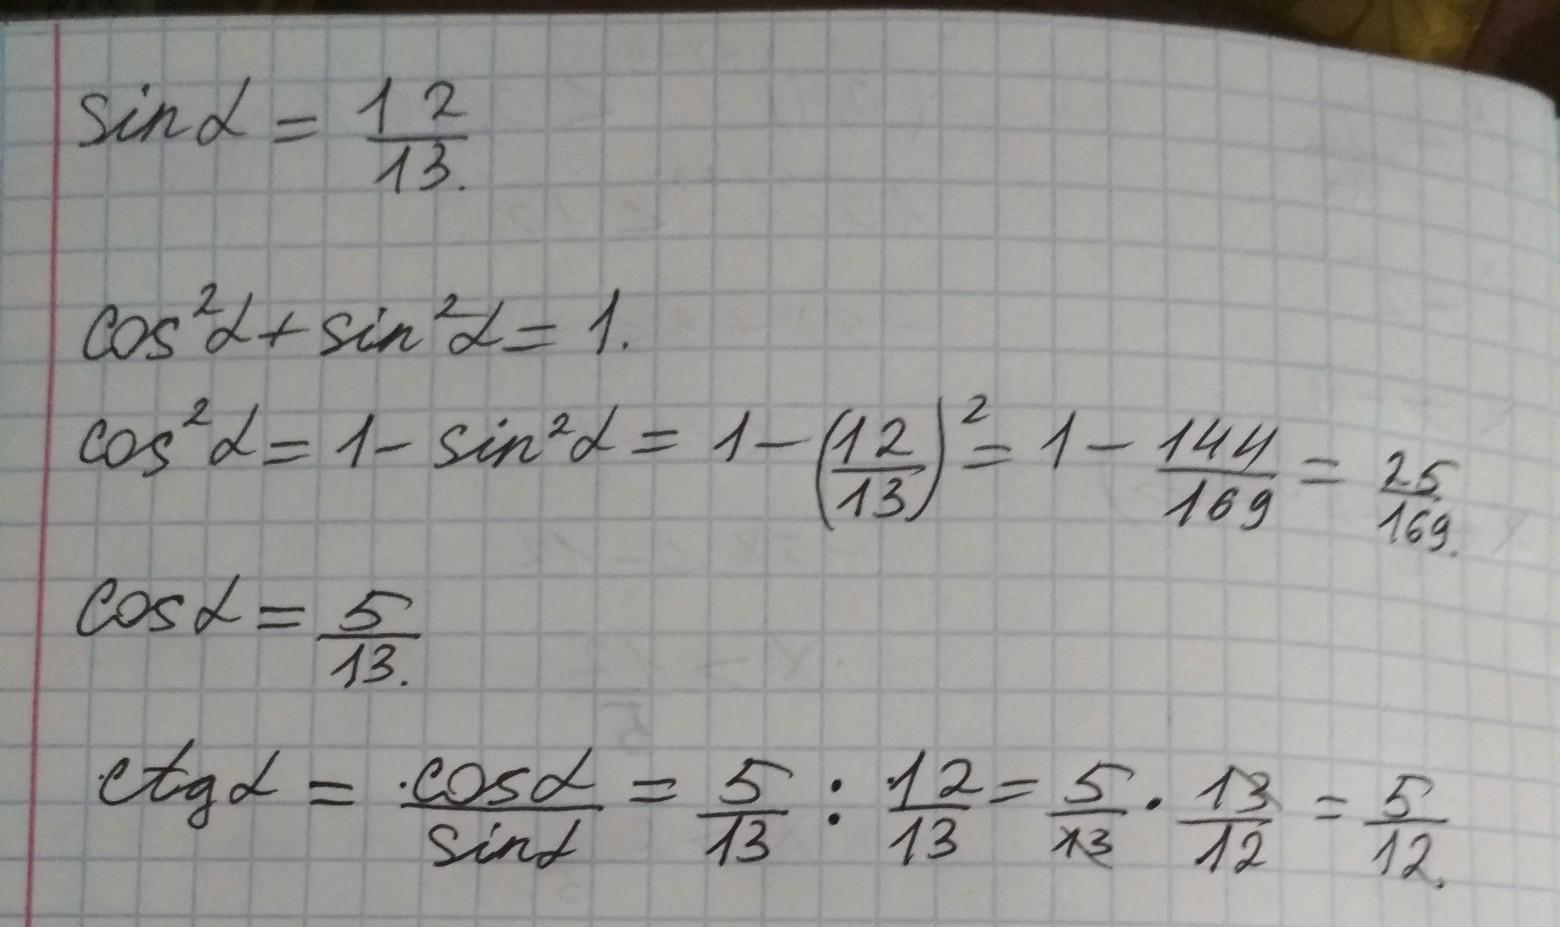 sin α = 12/13.
cos²α + sin²α = 1.
cos²α = 1 - sin²α = 1 - (12/13)² = 1 - 144/169 = 25/169.
cos α = 5/13.
ctg α = cos α/sin α = 5/13 : 12/13 = 5/13 · 13/12 = 5/12.